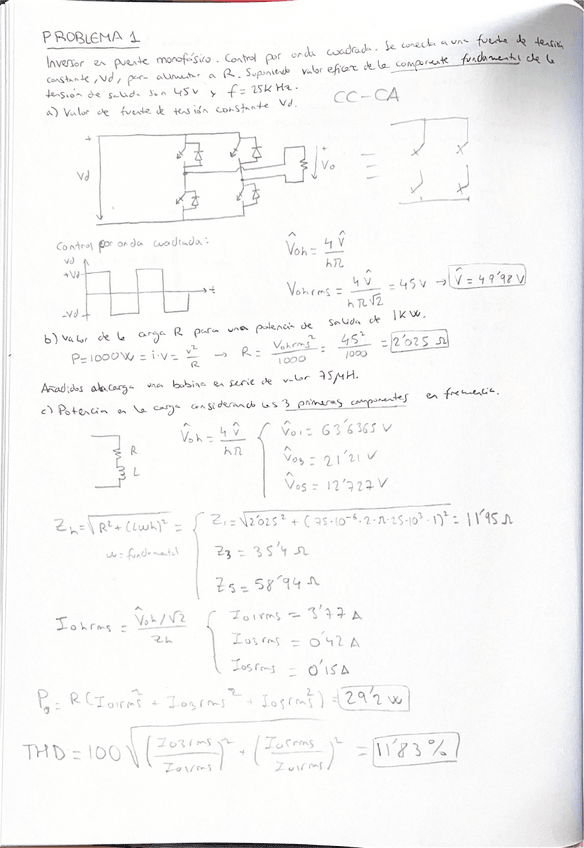 PROBLEMA 1
Inversor en puente monofásico. Control por onda cuadrada. Se conecta a una fuente de tensión
constante, Vd, para alimentar a R. Suponiendo valor eficaz de la componente fundamental de la
tensión de salida son 45V y f = 25KHz.
a) Valor de fuente de tensión constante Vd.
CC-CA
+
Vd
+
Vo
-
Control por onda cuadrada:
Vd
+Vd
-Vd
t
V̂oh = 4 V̂ / hπ
Vohrms = 4 V̂ / hπ√2 = 45V → V̂ = 49'98 V
b) Valor de la carga R para una potencia de salida de 1KW.
P = 1000W = i·v = v² / R → R = Vohrms² / 1000 = 45² / 1000 = 2'025 Ω
Añadidos a la carga una bobina en serie de valor 75μH.
c) Potencia en la carga considerando los 3 primeras componentes en frecuencia.
R
L
V̂oh = 4 V̂ / hπ
V̂o1 = 63'6365 V
V̂o3 = 21'21 V
V̂o5 = 12'727 V
Zh = √R² + (Lωh)² =
ω = fundamental
Z1 = √2'025² + (75·10⁻⁶·2·π·25·10³·1)² = 11'95 Ω
Z3 = 35'4 Ω
Z5 = 58'94 Ω
Iohrms = V̂oh/√2 / Zh
Io1rms = 3'77 A
Io3rms = 0'42 A
Io5rms = 0'15 A
Po = R (Io1rms² + Io3rms² + Io5rms²) = 29'2 W
THD = 100 √(Io3rms / Io1rms)² + (Io5rms / Io1rms)² = 11'83 %